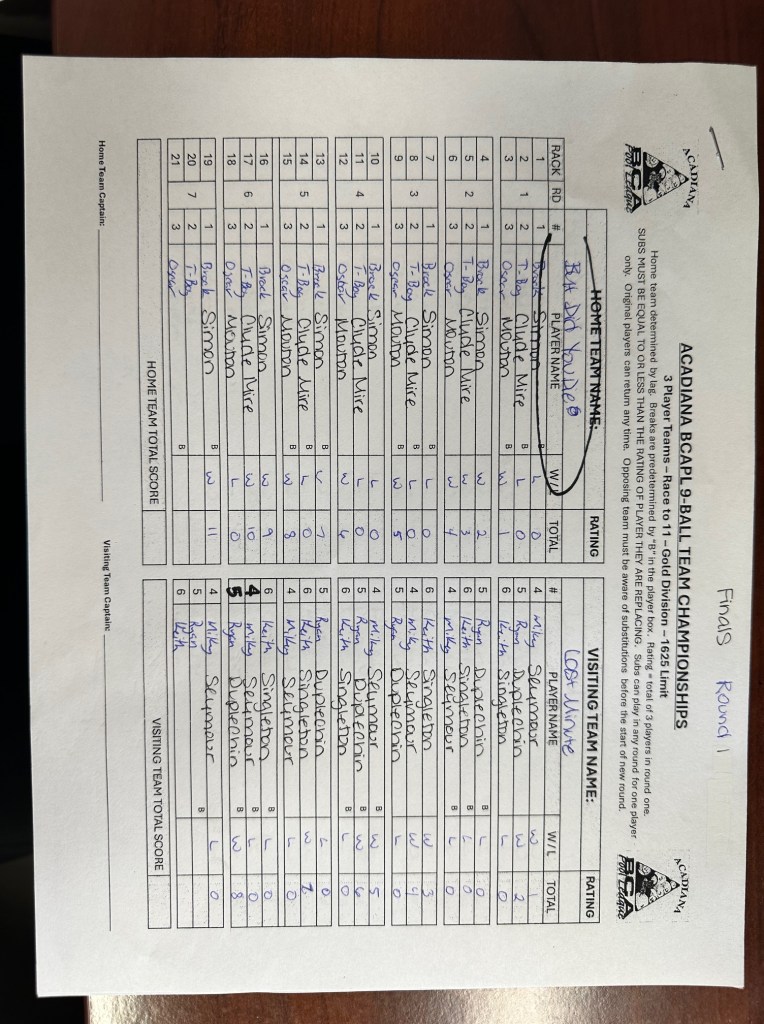 Finals Round 1
ACADIANA
BCA
Pool League
ACADIANA BCAPL 9-BALL TEAM CHAMPIONSHIPS
ACADIANA
BCA
Pool League
3 Player Teams – Race to 11 – Gold Division – 1625 Limit
Home team determined by lag. Breaks are predetermined by "B" in the player box. Rating = total of 3 players in round one.
SUBS MUST BE EQUAL TO OR LESS THAN THE RATING OF PLAYER THEY ARE REPLACING. Subs can play in any round for one player
only. Original players can return any time. Opposing team must be aware of substitutions before the start of new round.
HOME TEAM NAME: RATING VISITING TEAM NAME: RATING
But Did You Die Lost Minute
RACK RD # PLAYER NAME W/L TOTAL # PLAYER NAME W/L TOTAL
1 1 Brock Simon B L 0 4 Mikey Seymour W 1
2 1 2 T-Boy Clyde Mire B L 0 5 Ryan Duplechin W 2
3 3 Oscar Mouton B W 1 6 Keith Singleton L 0
4 1 Brock Simon W 2 5 Ryan Duplechin B L 0
5 2 2 T-Boy Clyde Mire W 3 6 Keith Singleton B L 0
6 3 Oscar Mouton W 4 4 Mikey Seymour B L 0
7 1 Brock Simon B L 0 6 Keith Singleton W 3
8 3 2 T-Boy Clyde Mire B L 0 4 Mikey Seymour W 4
9 3 Oscar Mouton B W 5 5 Ryan Duplechin L 0
10 1 Brock Simon L 0 4 Mikey Seymour B W 5
11 4 2 T-Boy Clyde Mire L 0 5 Ryan Duplechin B W 6
12 3 Oscar Mouton W 6 6 Keith Singleton B L 0
13 1 Brock Simon B 7 5 Ryan Duplechin L 0
14 5 2 T-Boy Clyde Mire B L 0 6 Keith Singleton W 7
15 3 Oscar Mouton B W 8 4 Mikey Seymour L 0
16 1 Brock Simon W 9 6 Keith Singleton B L 0
17 6 2 T-Boy Clyde Mire W 10 4 Mikey Seymour B L 0
18 3 Oscar Mouton L 0 5 Ryan Duplechin B W 8
19 1 Brock Simon B W 11 4 Mikey Seymour L 0
20 7 2 T-Boy 5 Ryan B
21 3 Oscar B 6 Keith
HOME TEAM TOTAL SCORE VISITING TEAM TOTAL SCORE
Home Team Captain: Visiting Team Captain: